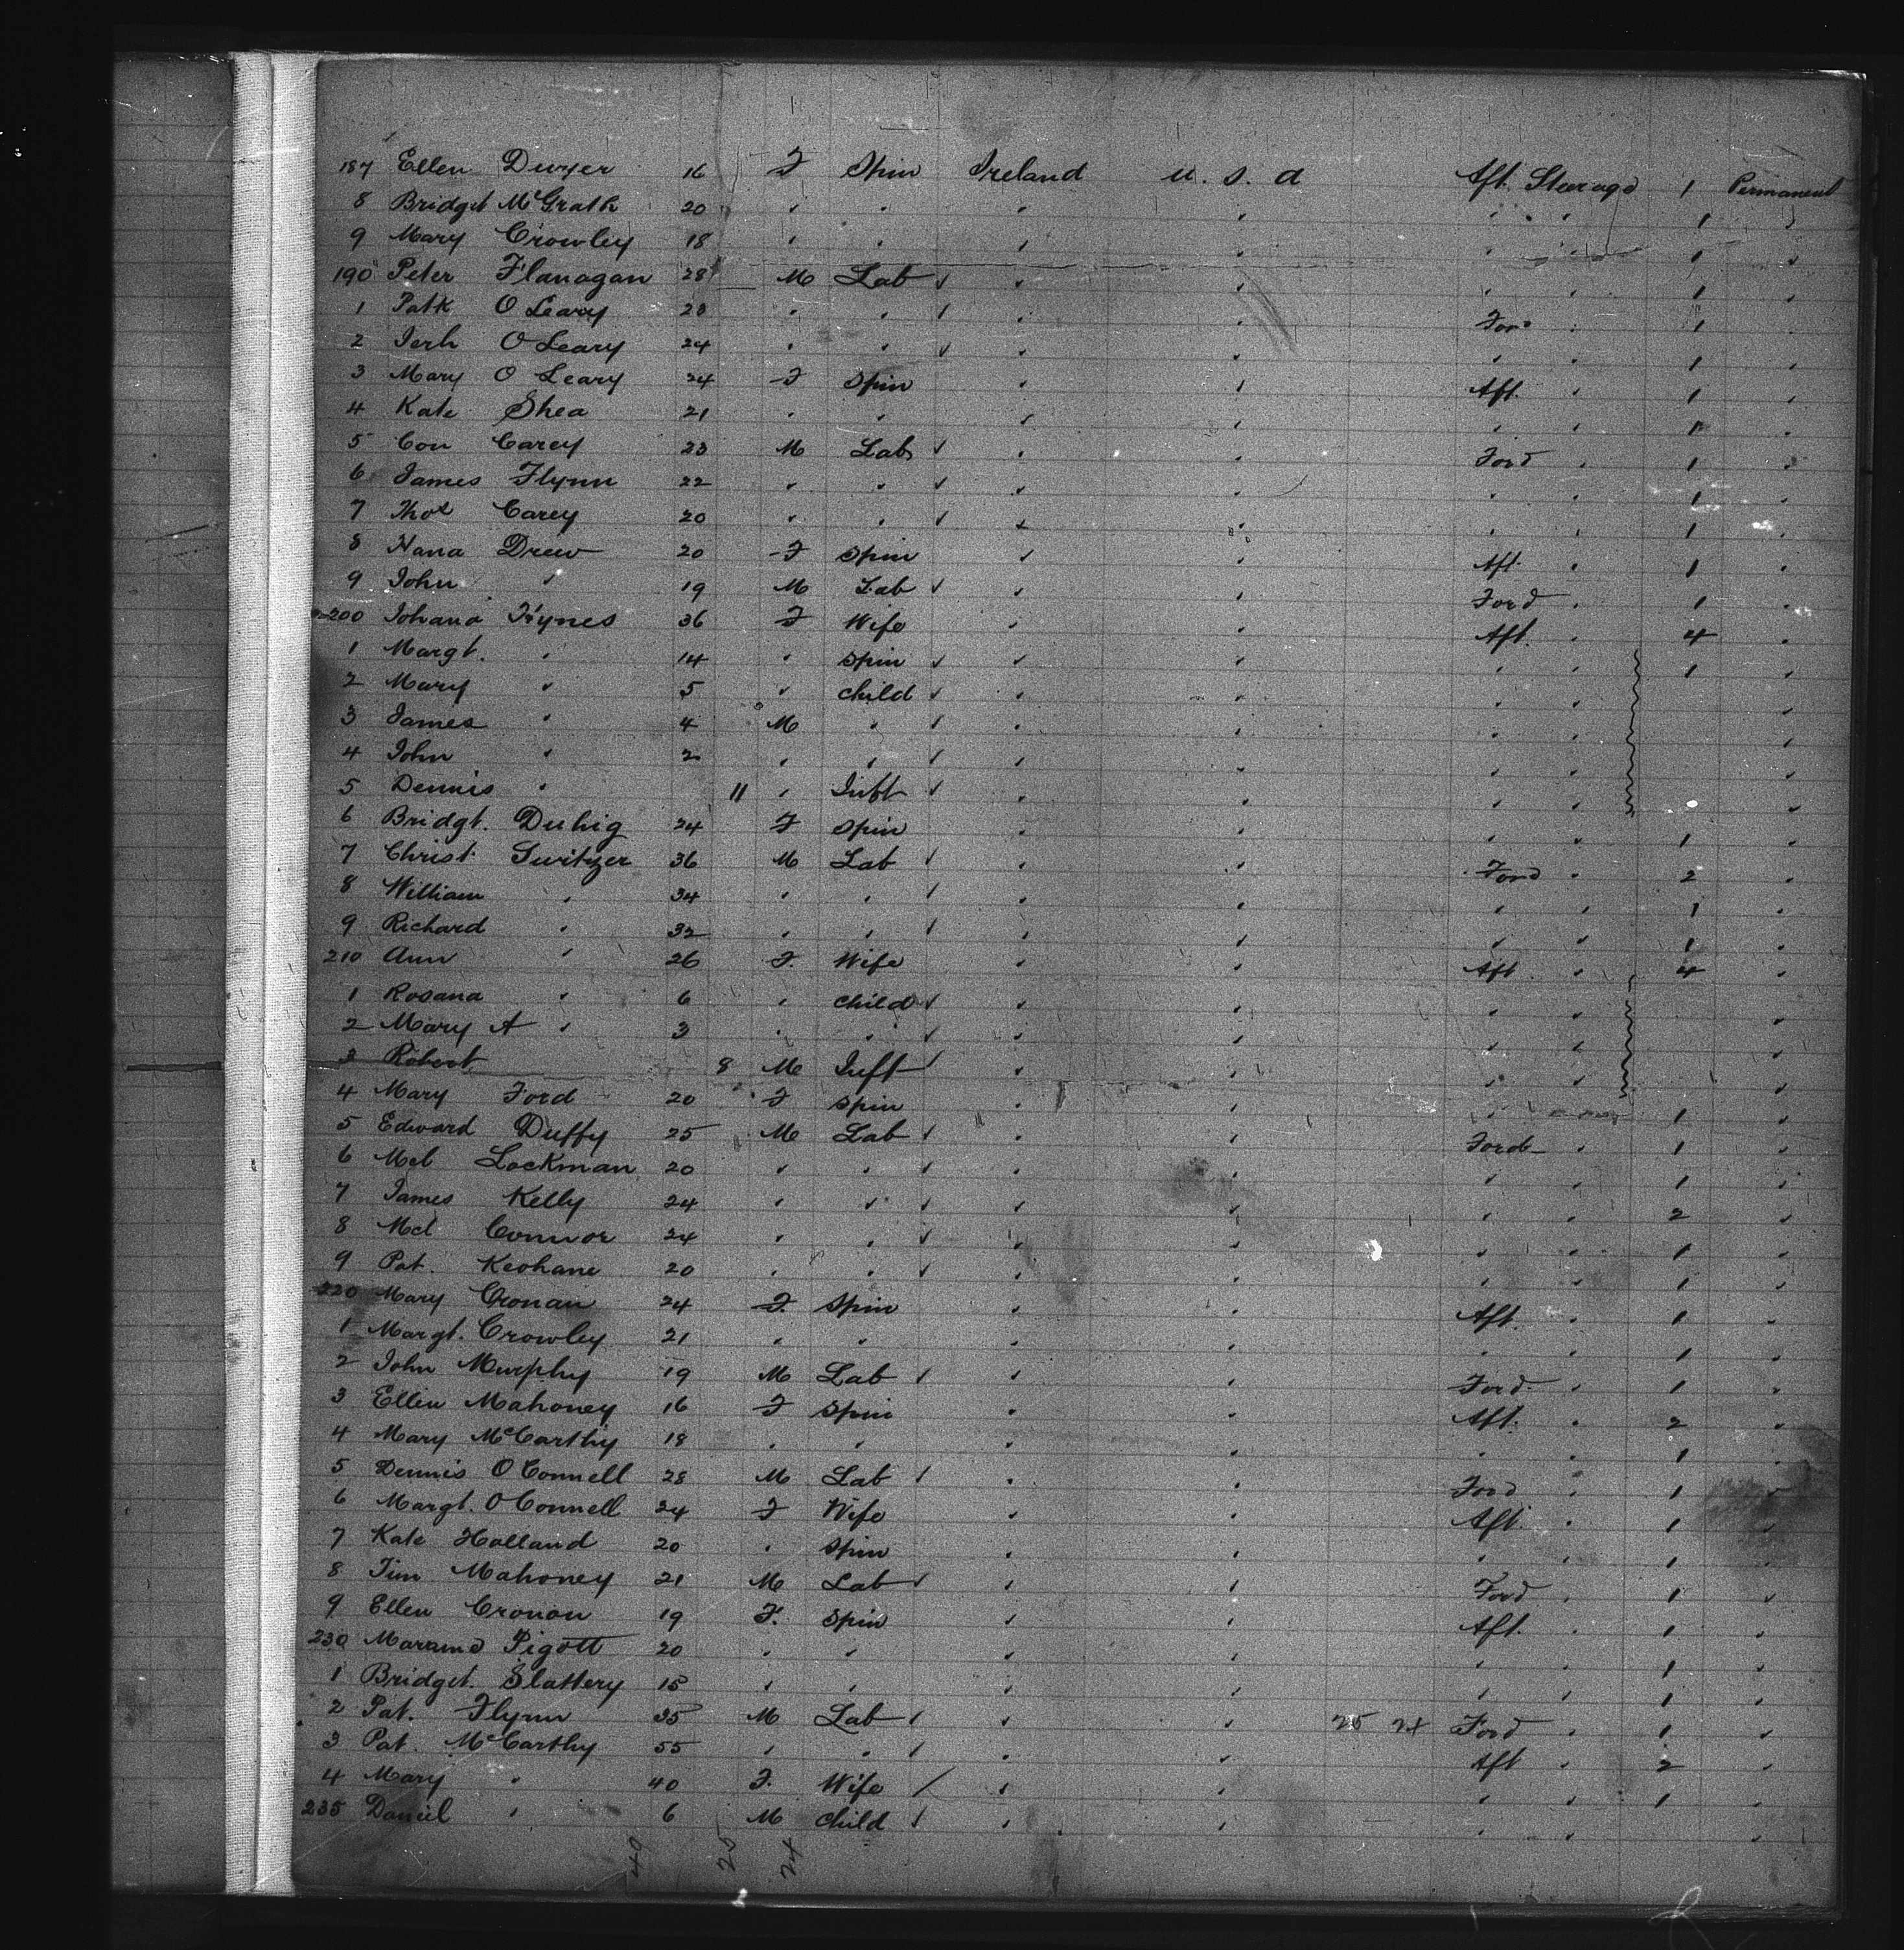 187 Ellen Dwyer 16 F Spin Ireland U. S. A Aft. Stearage 1 Permanent
8 Bridget McGrath 20 " " " " " " 1 "
9 Mary Crowley 18 " " " " " " 1 "
190 Peter Flanagan 28 M Lab ✓ " " " " 1 "
1 Patk O Leary 28 " " ✓ " " Ford " 1 "
2 Jerh O Leary 24 " " ✓ " " " " 1 "
3 Mary O Leary 24 F Spin " " Aft. " 1 "
4 Kate Shea 21 " " " " " " 1 "
5 Con Carey 23 M Lab ✓ " " Ford " 1 "
6 James Flynn 22 " " ✓ " " " " 1 "
7 Thos Carey 20 " " ✓ " " " " 1 "
8 Hana Drew 20 F Spin " " Aft. " 1 "
9 John " 19 M Lab ✓ " " Ford " 1 "
200 Johana 36 F Wife " " Aft. " 4 "
1 Margt. " 14 " Spin ✓ " " " " 1 "
2 Mary " 5 " Child ✓ " " " " "
3 James " 4 M " ✓ " " " " "
4 John " 2 " " ✓ " " " " "
5 Dennis " 11 " Inft ✓ " " " " "
6 Bridgt. Duhig 24 F Spin " " " " 1 "
7 Christ. Switzer 36 M Lab ✓ " " Ford " 2 "
8 William " 34 " " ✓ " " " " 1 "
9 Richard " 32 " " ✓ " " " " 1 "
210 Ann " 26 F. Wife " " Aft. " 4 "
1 Rosana " 6 " Child ✓ " " " " "
2 Mary A " 3 " " ✓ " " " " "
3 Robert 8 M Inft ✓ " " " " "
4 Mary Ford 20 F Spin " " " 1 "
5 Edward Duffy 25 M Lab ✓ " " Ford " 1 "
6 Mcl Lockman 20 " " ✓ " " " " 1 "
7 James Kelly 24 " " ✓ " " " " 2 "
8 Mcl Connor 24 " " ✓ " " " " 1 "
9 Pat. Keohane 20 " " ✓ " " " " 1 "
220 Mary Cronan 24 F. Spin " " Aft. " 1 "
1 Margt. Crowley 21 " " " " " " 1 "
2 John Murphy 19 M Lab ✓ " " Ford. " 1 "
3 Ellen Mahoney 16 F Spin " " Aft. " 2 "
4 Mary McCarthy 18 " " " " " " 1 "
5 Dennis O Connell 28 M Lab ✓ " " Ford " 1 "
6 Margt. O Connell 24 F Wife " " Aft. " 1 "
7 Kate Holland 20 " Spin " " " " 1 "
8 Tim Mahoney 21 M Lab ✓ " " Ford " 1 "
9 Ellen Cronon 19 F. Spin " " Aft. " 1 "
230 Pigott 20 " " " " " " 1 "
1 Bridget. Slattery 15 " " " " " " 1 "
2 Pat. Flynn 35 M Lab ✓ " " 25 24 Ford " 1 "
3 Pat. McCarthy 55 " " ✓ " " Aft " 2 "
4 Mary " 40 F. Wife / " " " " 1 "
235 Daniel " 6 M Child ✓ " " " " "
49 25 24